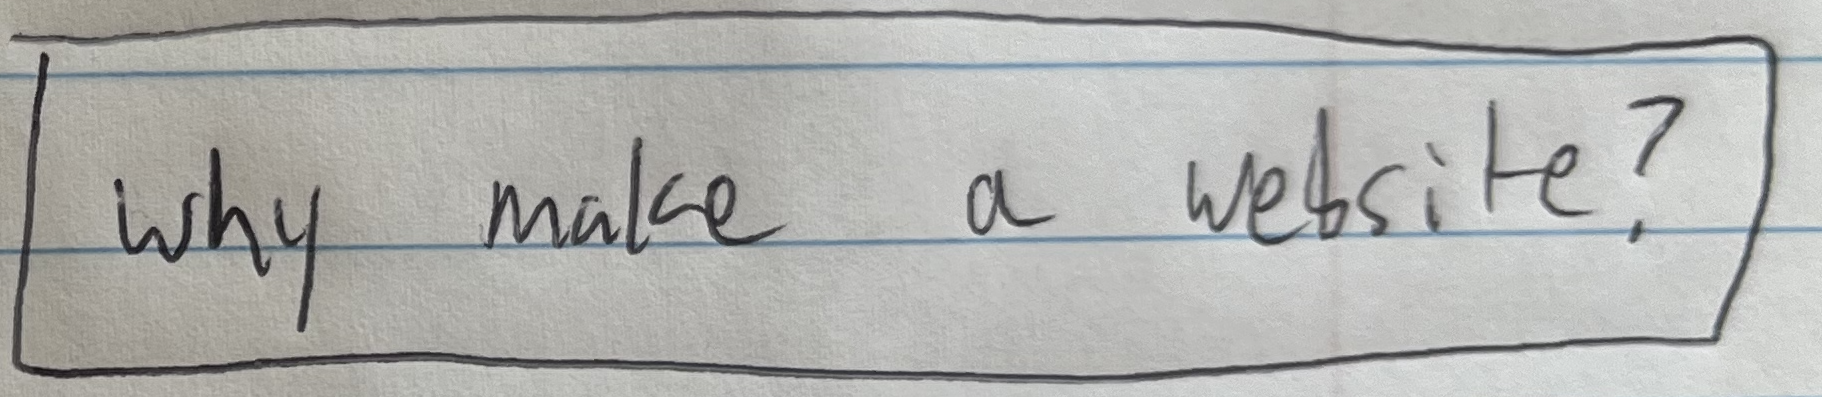 why make a website?